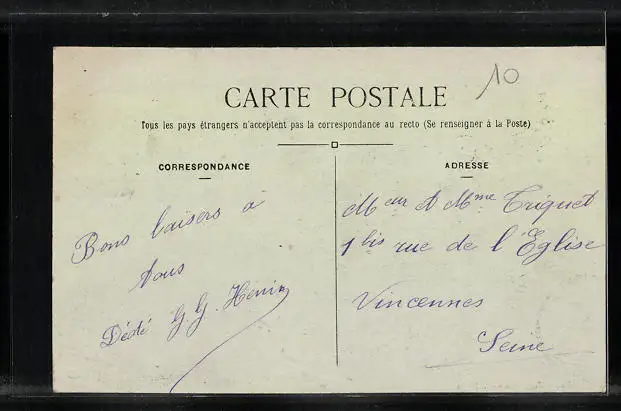 10
CARTE POSTALE
Tous les pays étrangers n'acceptent pas la correspondance au recto (Se renseigner à la Poste)
CORRESPONDANCE
Bons baisers à
tous
Dédé G.G. Henin
ADRESSE
Meur & Mme Triquet
1 bis rue de l'Eglise
Vincennes
Seine